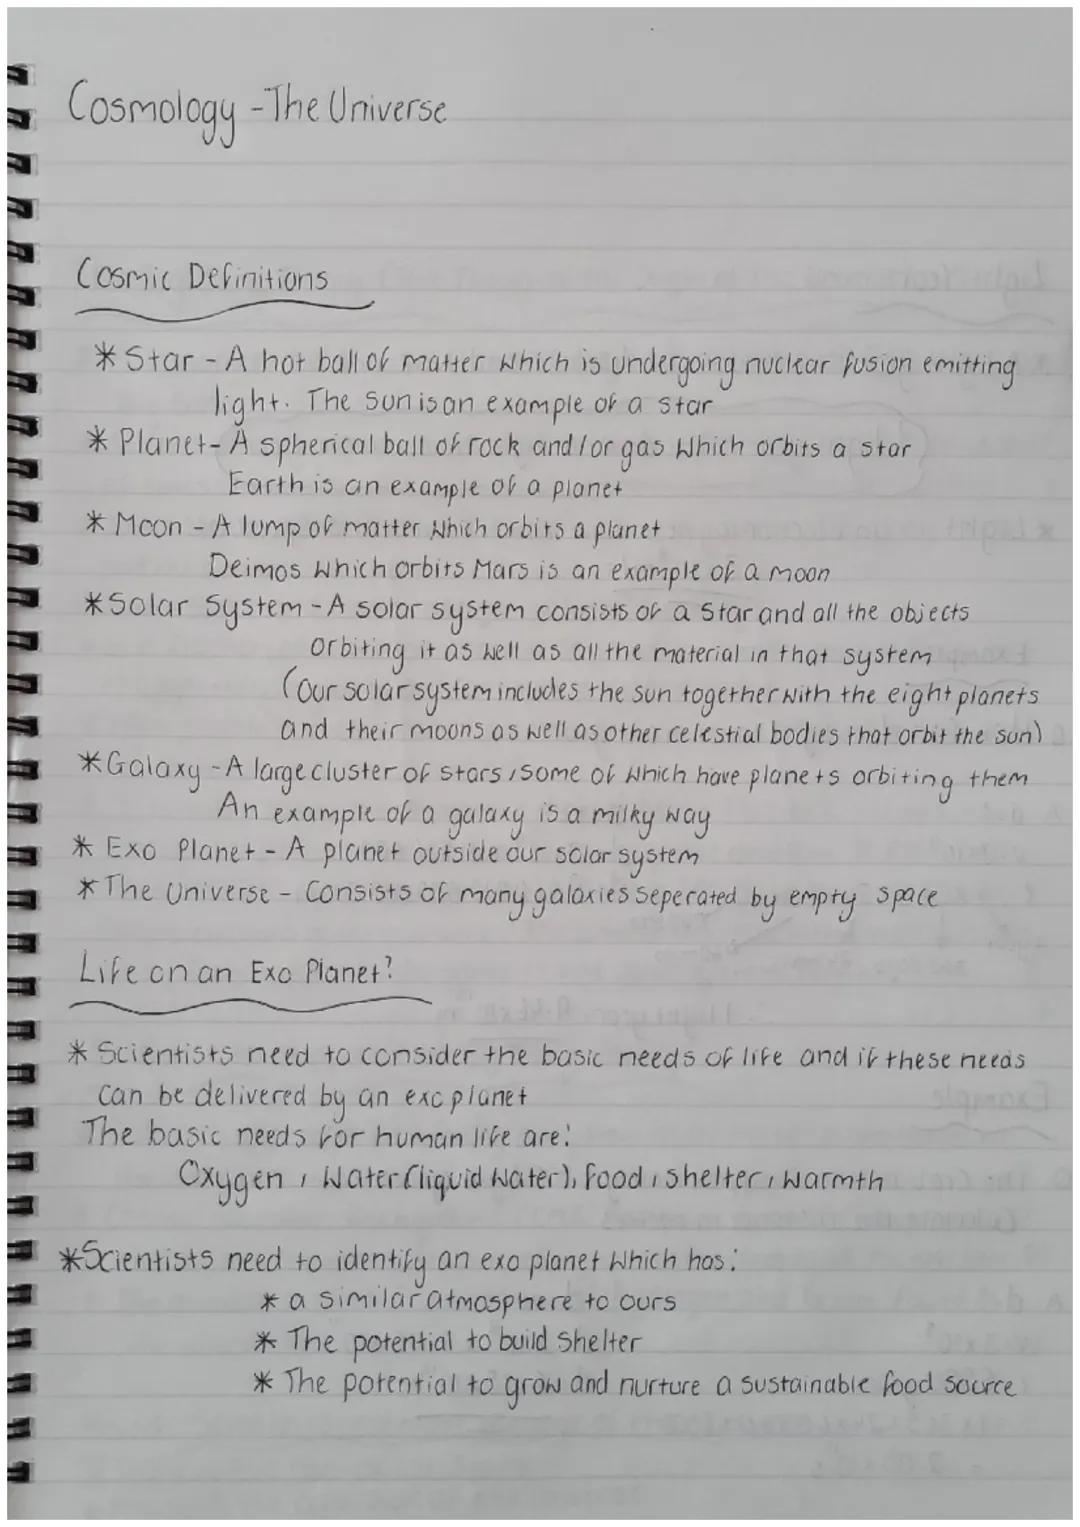 Cosmology - The Universe
Cosmic Definitions
* Star - A hot ball of matter which is undergoing nuclear fusion emitting
light. The Sun is an example of a star
* Planet - A spherical ball of rock and/or gas which orbits a star
Earth is an example of a planet
* Moon - A lump of matter which orbits a planet
Deimos which orbits Mars is an example of a moon
* Solar System - A solar system consists of a star and all the objects
orbiting it as well as all the material in that system
(Our solar system includes the sun together with the eight planets
and their moons as well as other celestial bodies that orbit the sun)
* Galaxy - A large cluster of stars, some of which have planets orbiting them
An example of a galaxy is a milky way
* Exo Planet - A planet outside our solar system
* The Universe - Consists of many galaxies seperated by empty space
Life on an Exo Planet?
* Scientists need to consider the basic needs of life and if these needs
can be delivered by an exo planet
The basic needs for human life are:
Oxygen, Water (liquid water), food, shelter, warmth
* Scientists need to identify an exo planet which has:
* a similar atmosphere to ours
* The potential to build shelter
* The potential to grow and nurture a sustainable food source